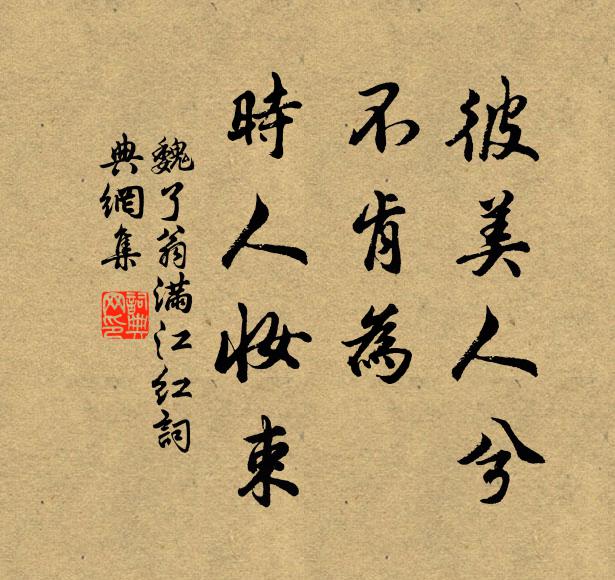 彼美人兮
不肯為
時人妝束
魏了翁滿江紅詞
典網集
詞典網印